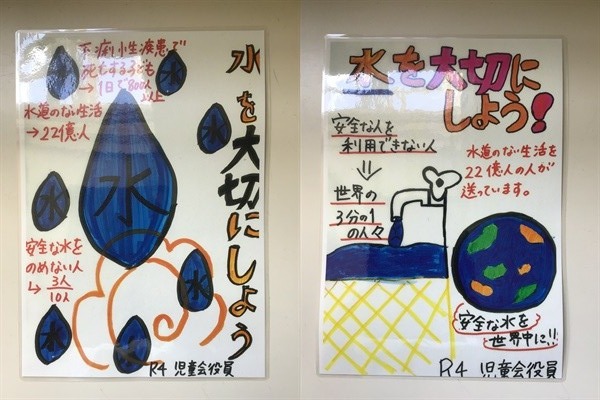 下痢性疾患で
死もする子ども
→1日で800人
以上
水道のない生活
→22億人
水を大切にしよう
水
水
水
水
水
水
水
水
安全な水を
のめない人
↳3人/10人
R4 児童会役員
水を大切に
しよう!
安全な人を
利用できない人
世界の
3分の1
の人々
水道のない生活を
22億人の人が
送っています。
安全な水を
世界中に!!
R4 児童会役員